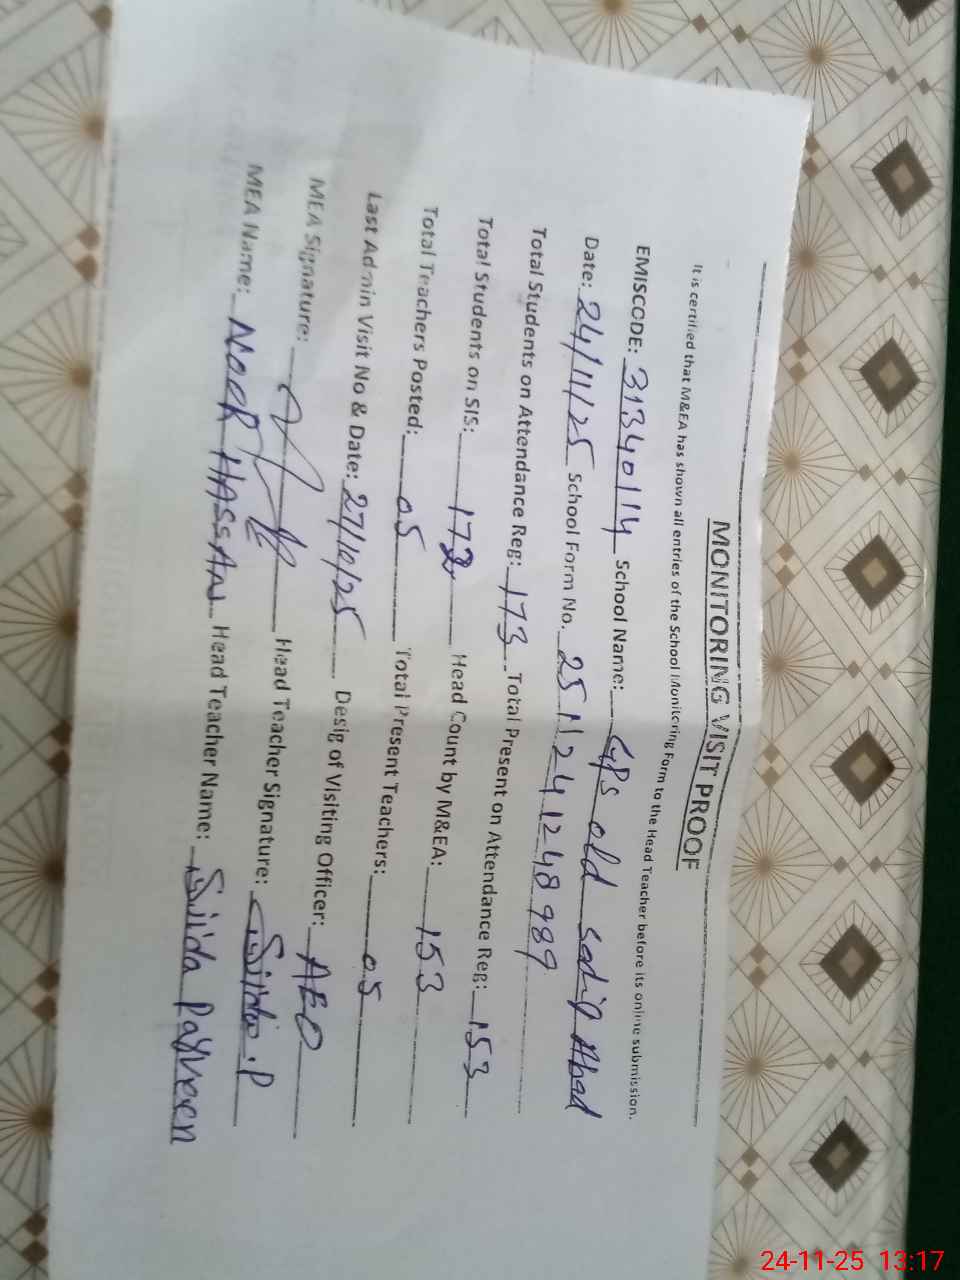 MONITORING VISIT PROOF
It is certified that M&EA has shown all entries of the School Monitoring Form to the Head Teacher before its online submission.
EMISCODE: 31340114 School Name: GPS old sadiq Abad
Date: 24/11/25 School Form No. 2511241248989
Total Students on Attendance Reg: 173 Total Present on Attendance Reg: 153
Total Students on SIS: 172 Head Count by M&EA: 153
Total Teachers Posted: 05 Total Present Teachers: 05
Last Admin Visit No & Date: 27/10/25 Desig of Visiting Officer: AEO
MEA Signature: Head Teacher Signature:
MEA Name: NOOR HASSAN Head Teacher Name: Sjida Parveen
24-11-25 13:17